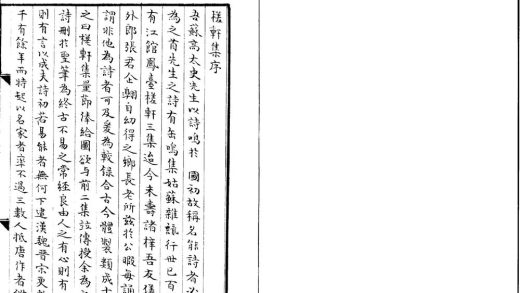 槎軒集序
吾蘇高太史先生以詩鳴於 國初故稱名能詩者必
為之首先生之詩有缶鳴集姑蘇雜詠行世已百
有江館鳳臺槎軒三集迨今未壽諸梓吾友儀
外郎張君企翱自幼得之鄉長老所茲於公暇每誦
謂非他為詩者可及爰為較錄合古今體製類成十
之曰槎軒集量節俸給圖欲與前二集竝傳授余為之
詩刪於聖筆為終古不易之常經良由人之有心則有
則有言以成夫詩初若易能者無何下逮漢魏晉宋更
千有餘年而特起以名家者率不過三數人抵唐作者